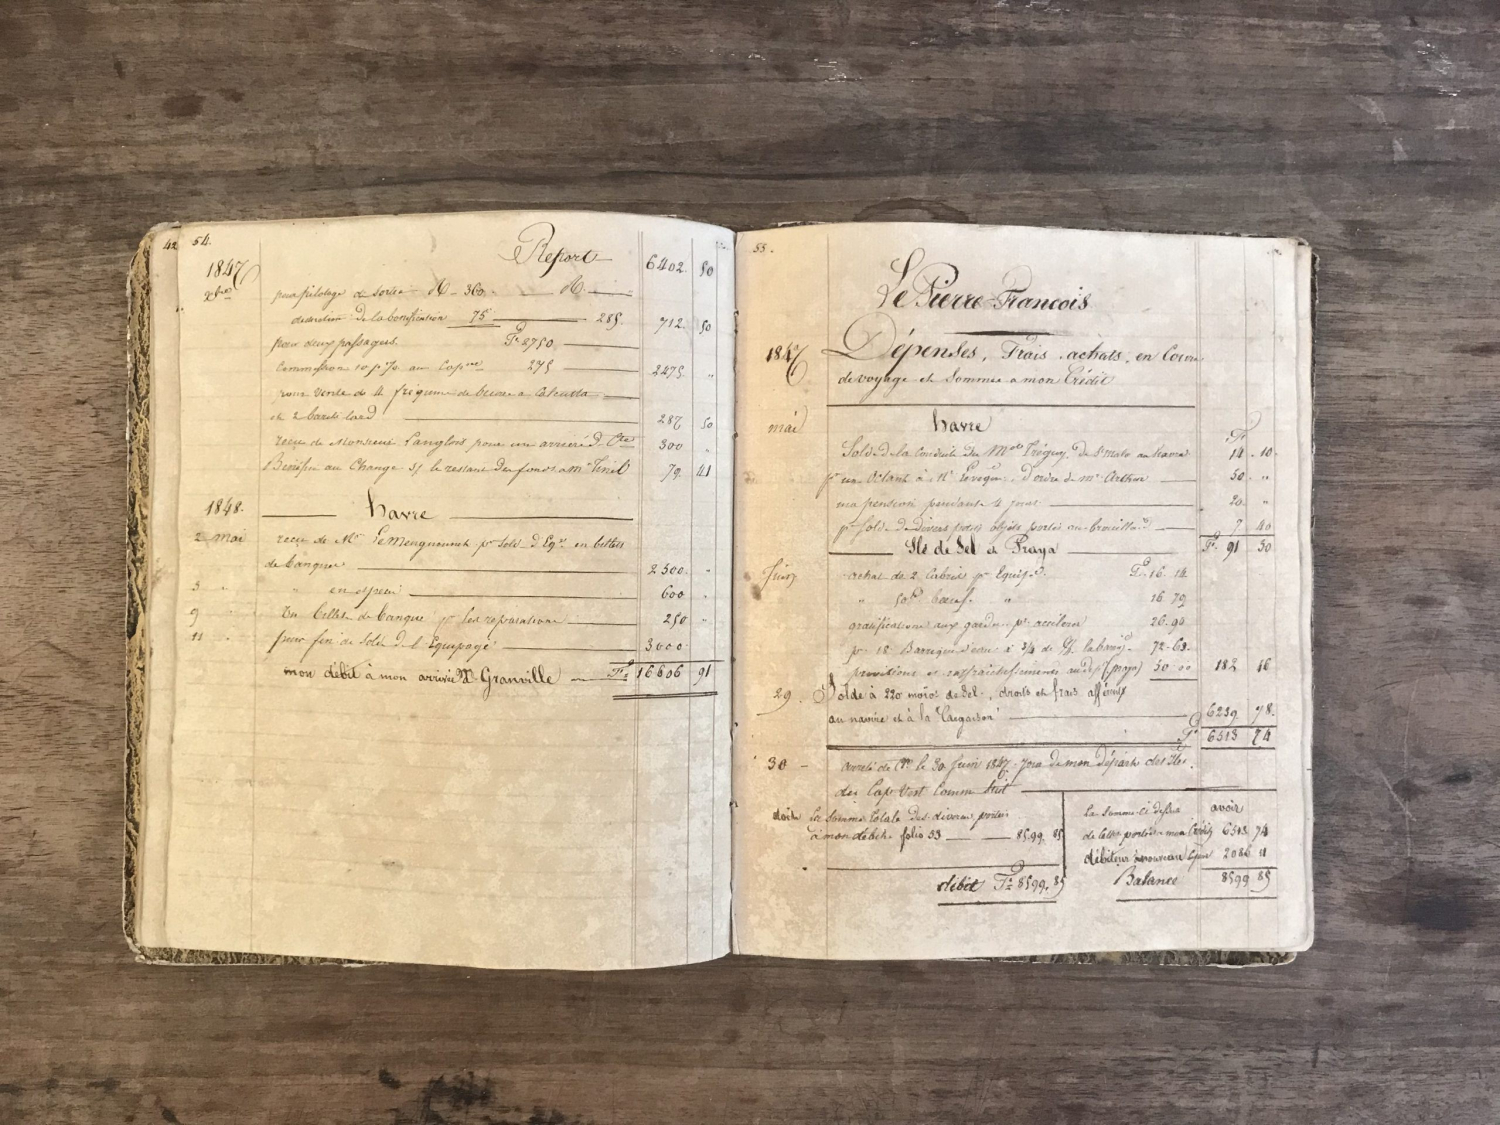 42 54.
Report 6402 50
1847
pour pilotage de sortie R 360. R
deduction de la bonification 75 285. 712. 50
pour deux passagers. Fs 2750.
Commission 10 p% au Capne 275 2475 "
pour vente de 4 de beurre a Calcutta
et 2 barils lard 287 50
recu de Monsieur Langlois pour un arriéré d 300 "
Bénéfice au Change s/ le restant des fonds a mr 79. 41
1848. havre
2 mai recu de Mr pr Solde d'Eqe en billets
de banque 2500 "
3 " " en espèces 600 "
9 " " En billets de banque pr les reparations 250 "
11 " pour fin de Solde de l'Equipage 3000
mon débit à mon arrivée à Granville Fs 16606 91
55.
Le Pierre-François
1847 Dépenses, Frais, achats, en Cours
de voyage et Sommes a mon Crédit
mai havre Fs
Solde de la conduite du Mot Tréguy de St malo au havre 14 - 10
pr un Octant à Mr Levêque, d'ordre de mr Arthur 50 "
ma pension pendant 4 jours 20 "
pr Solde de divers petits objets portés au brouillard 7 40
Ile de Sel à Praya Fs 91 50
Juin achat de 2 Cabris pr Equipge Fs 16. 14
" 50 lb boeuf. " 16 79
gratifications aux gardes pr accélérer 26. 90
pr 18 Barriques d'eau à 3/4 de la barrique 72-63.
provisions et raffraichissements au dept (praya) 50 00 182 16
29. Solde à 220 moios de Sel, droits et frais afférents
au navire et à la Cargaison 6239 98.
Fs 6513 74
30 - arrêté de Cte le 30 Juin 1847. Jour de mon Départ des iles
du Cap Vert Comme Suit
doit La Somme totale des divers portés
à mon débit folio 53 8599. 85
débit Fs 8599. 85
avoir
La Somme ci dessus
de celles portées a mon Crédit 6513 74
débiteur à nouveau 2086 11
Balance 8599 85